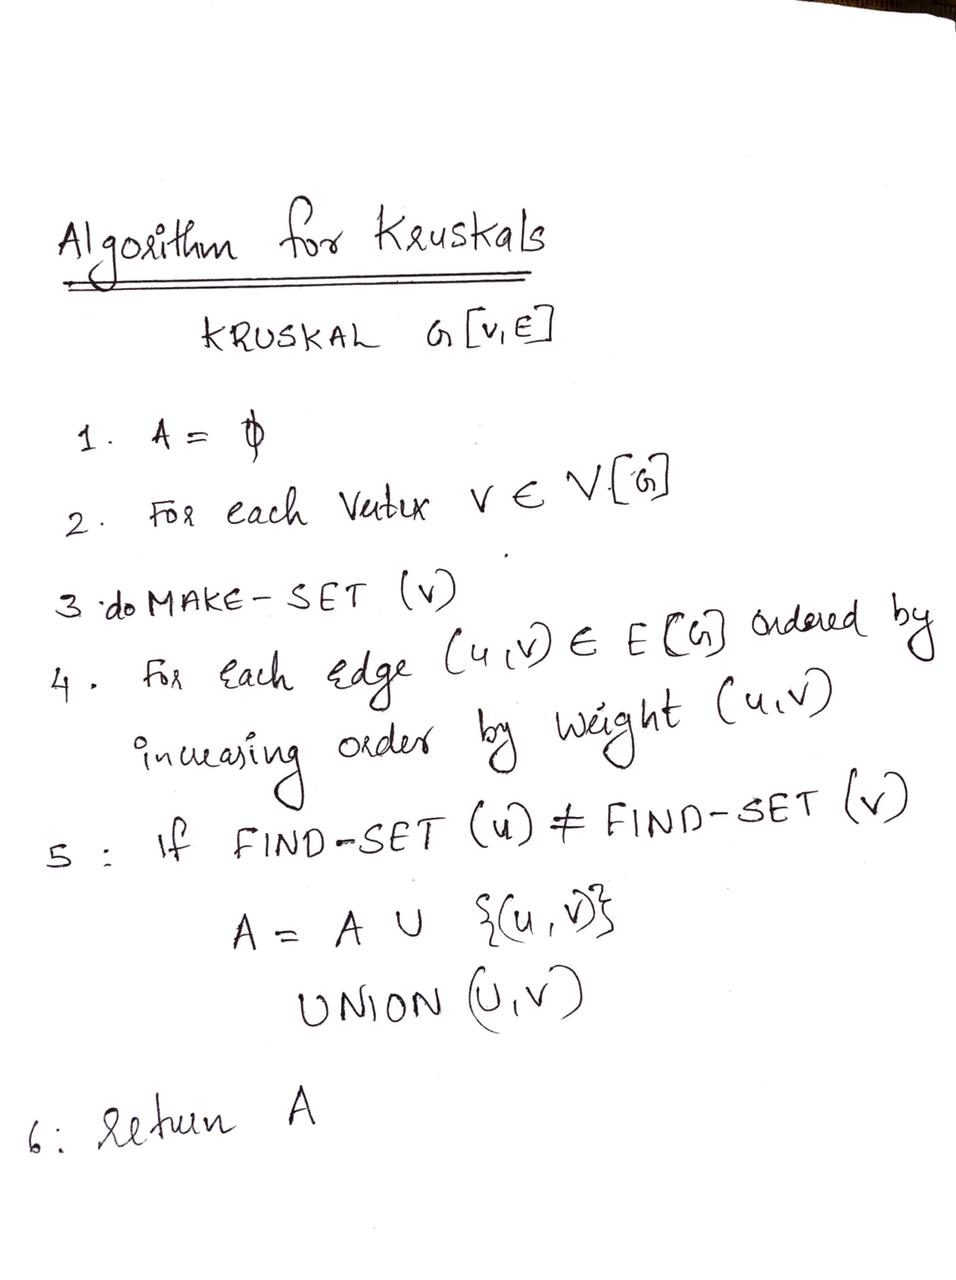 Algorithm for Kruskals
KRUSKAL G[V,E]
1. A = ϕ
2. For each Vertex v ∈ V[G]
3. do MAKE-SET (v)
4. For Each Edge (u,v) ∈ E[G] ordered by
increasing order by weight (u,v)
5: if FIND-SET (u) ≠ FIND-SET (v)
A = A ∪ {(u,v)}
UNION (U,V)
6: Return A